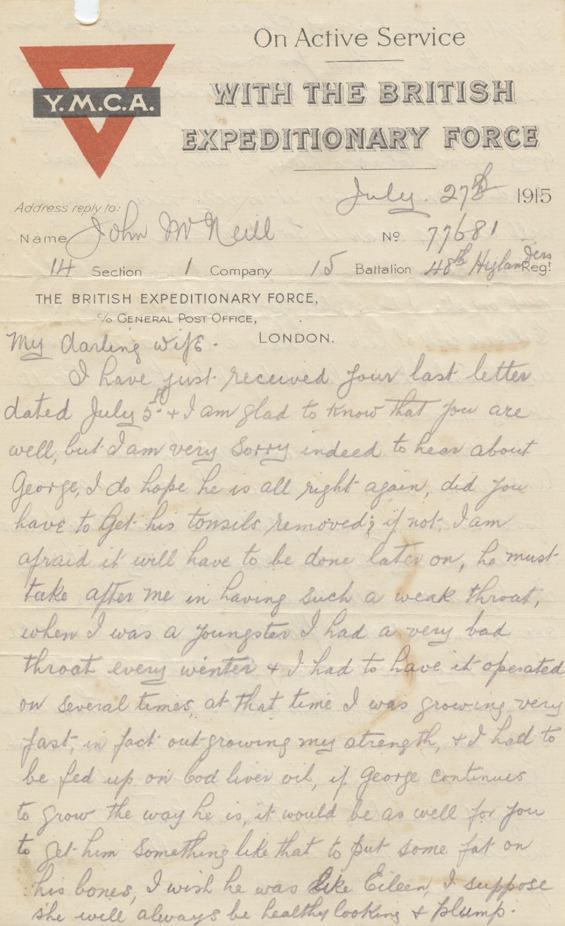 On Active Service
WITH THE BRITISH
EXPEDITIONARY FORCE
Y.M.C.A.
July. 27th 1915
Address reply to:
Name John McNeill No. 77681
14 Section 1 Company 15 Battalion 48th Highlanders Regt
THE BRITISH EXPEDITIONARY FORCE,
c/o GENERAL POST OFFICE,
LONDON.
My darling wife -
I have just received your last letter
dated July 5th & I am glad to know that you are
well, but I am very sorry indeed to hear about
George, I do hope he is all right again, did you
have to get his tonsils removed; if not. I am
afraid it will have to be done later on, he must
take after me in having such a weak throat,
when I was a youngster I had a very bad
throat every winter & I had to have it operated
on several times, at that time I was growing very
fast, in fact outgrowing my strength, & I had to
be fed up on Cod liver oil, if George continues
to grow the way he is, it would be as well for you
to get him something like that to put some fat on
his bones, I wish he was like Eileen, I suppose
she will always be healthy looking & plump.